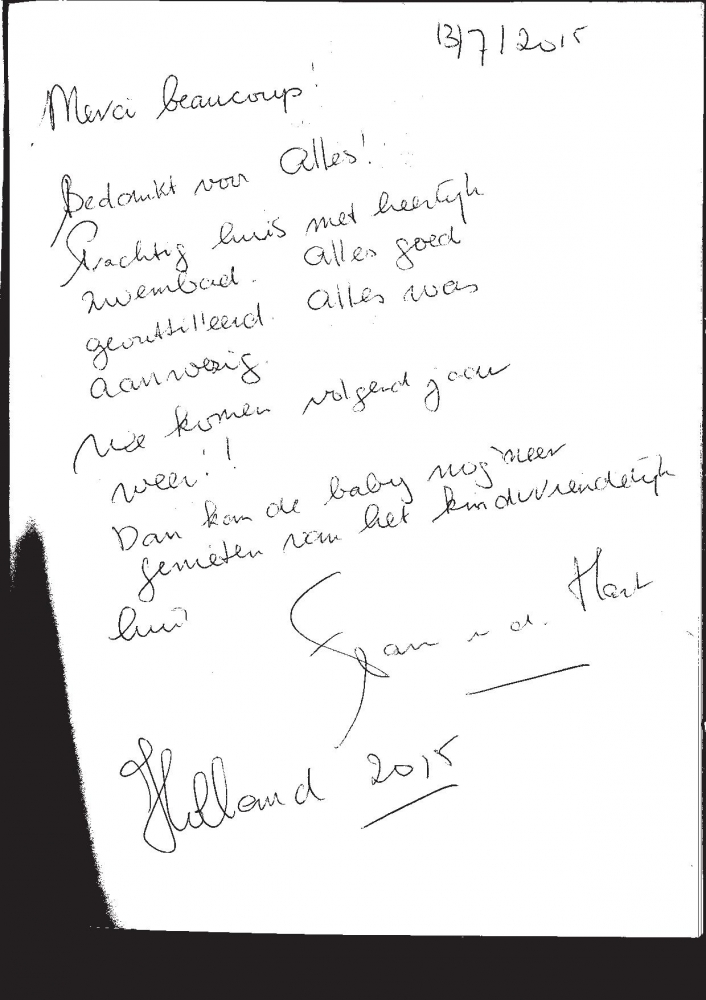 13/7/2015
Merci beaucoup!
Bedankt voor Alles!
Prachtig huis met heerlijk
zwembad. Alles goed
geoutilleerd. Alles was
aanwezig.
We komen volgend jaar
weer!!
Dan kan de baby nog meer
genieten van het kindvriendelijk
huis
Fam v. d. Hart
Holland 2015